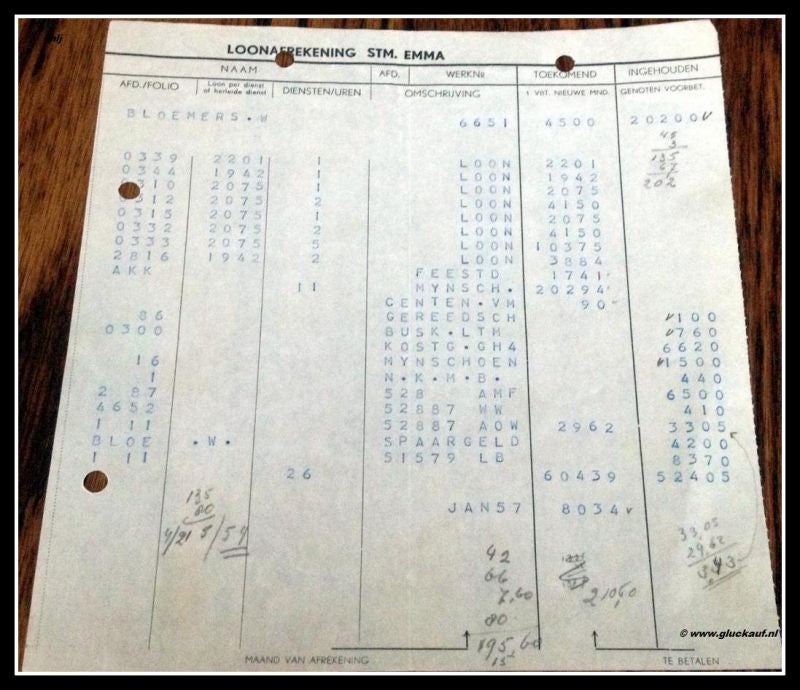 LOONAFREKENING STM. EMMA
NAAM AFD. WERKNo TOEKOMEND INGEHOUDEN
AFD./FOLIO Loon per dienst of herleide dienst DIENSTEN/UREN OMSCHRIJVING 1 VBT. NIEUWE MND. GENOTEN VOORBET.
BLOEMERS.W 6651 4500 20200
45
3
135
67
202
0339 2201 1 LOON 2201
0344 1942 1 LOON 1942
310 2075 1 LOON 2075
0312 2075 2 LOON 4150
0315 2075 1 LOON 2075
0332 2075 2 LOON 4150
0333 2075 5 LOON 10375
2816 1942 2 LOON 3884
AKK FEESTD 1741
11 MYNSCH. 20294
CENTEN.VM 90
86 GEREEDSCH 100
0300 BUSK.LTM 760
KOSTG.GH4 6620
16 MYNSCHOEN 1500
1 N.K.M.B. 440
2 87 528 AMF 6500
4652 52887 WW 410
1 11 52887 AOW 2962 3305
BLOE .W. SPAARGELD 4200
1 11 51579 LB 8370
26 60439 52405
JAN57 8034
135
80
4/21 5/54
33,05
29,62
3,43
42
66
7,60
80
195,60
15
210,60
MAAND VAN AFREKENING TE BETALEN
© www.gluckauf.nl